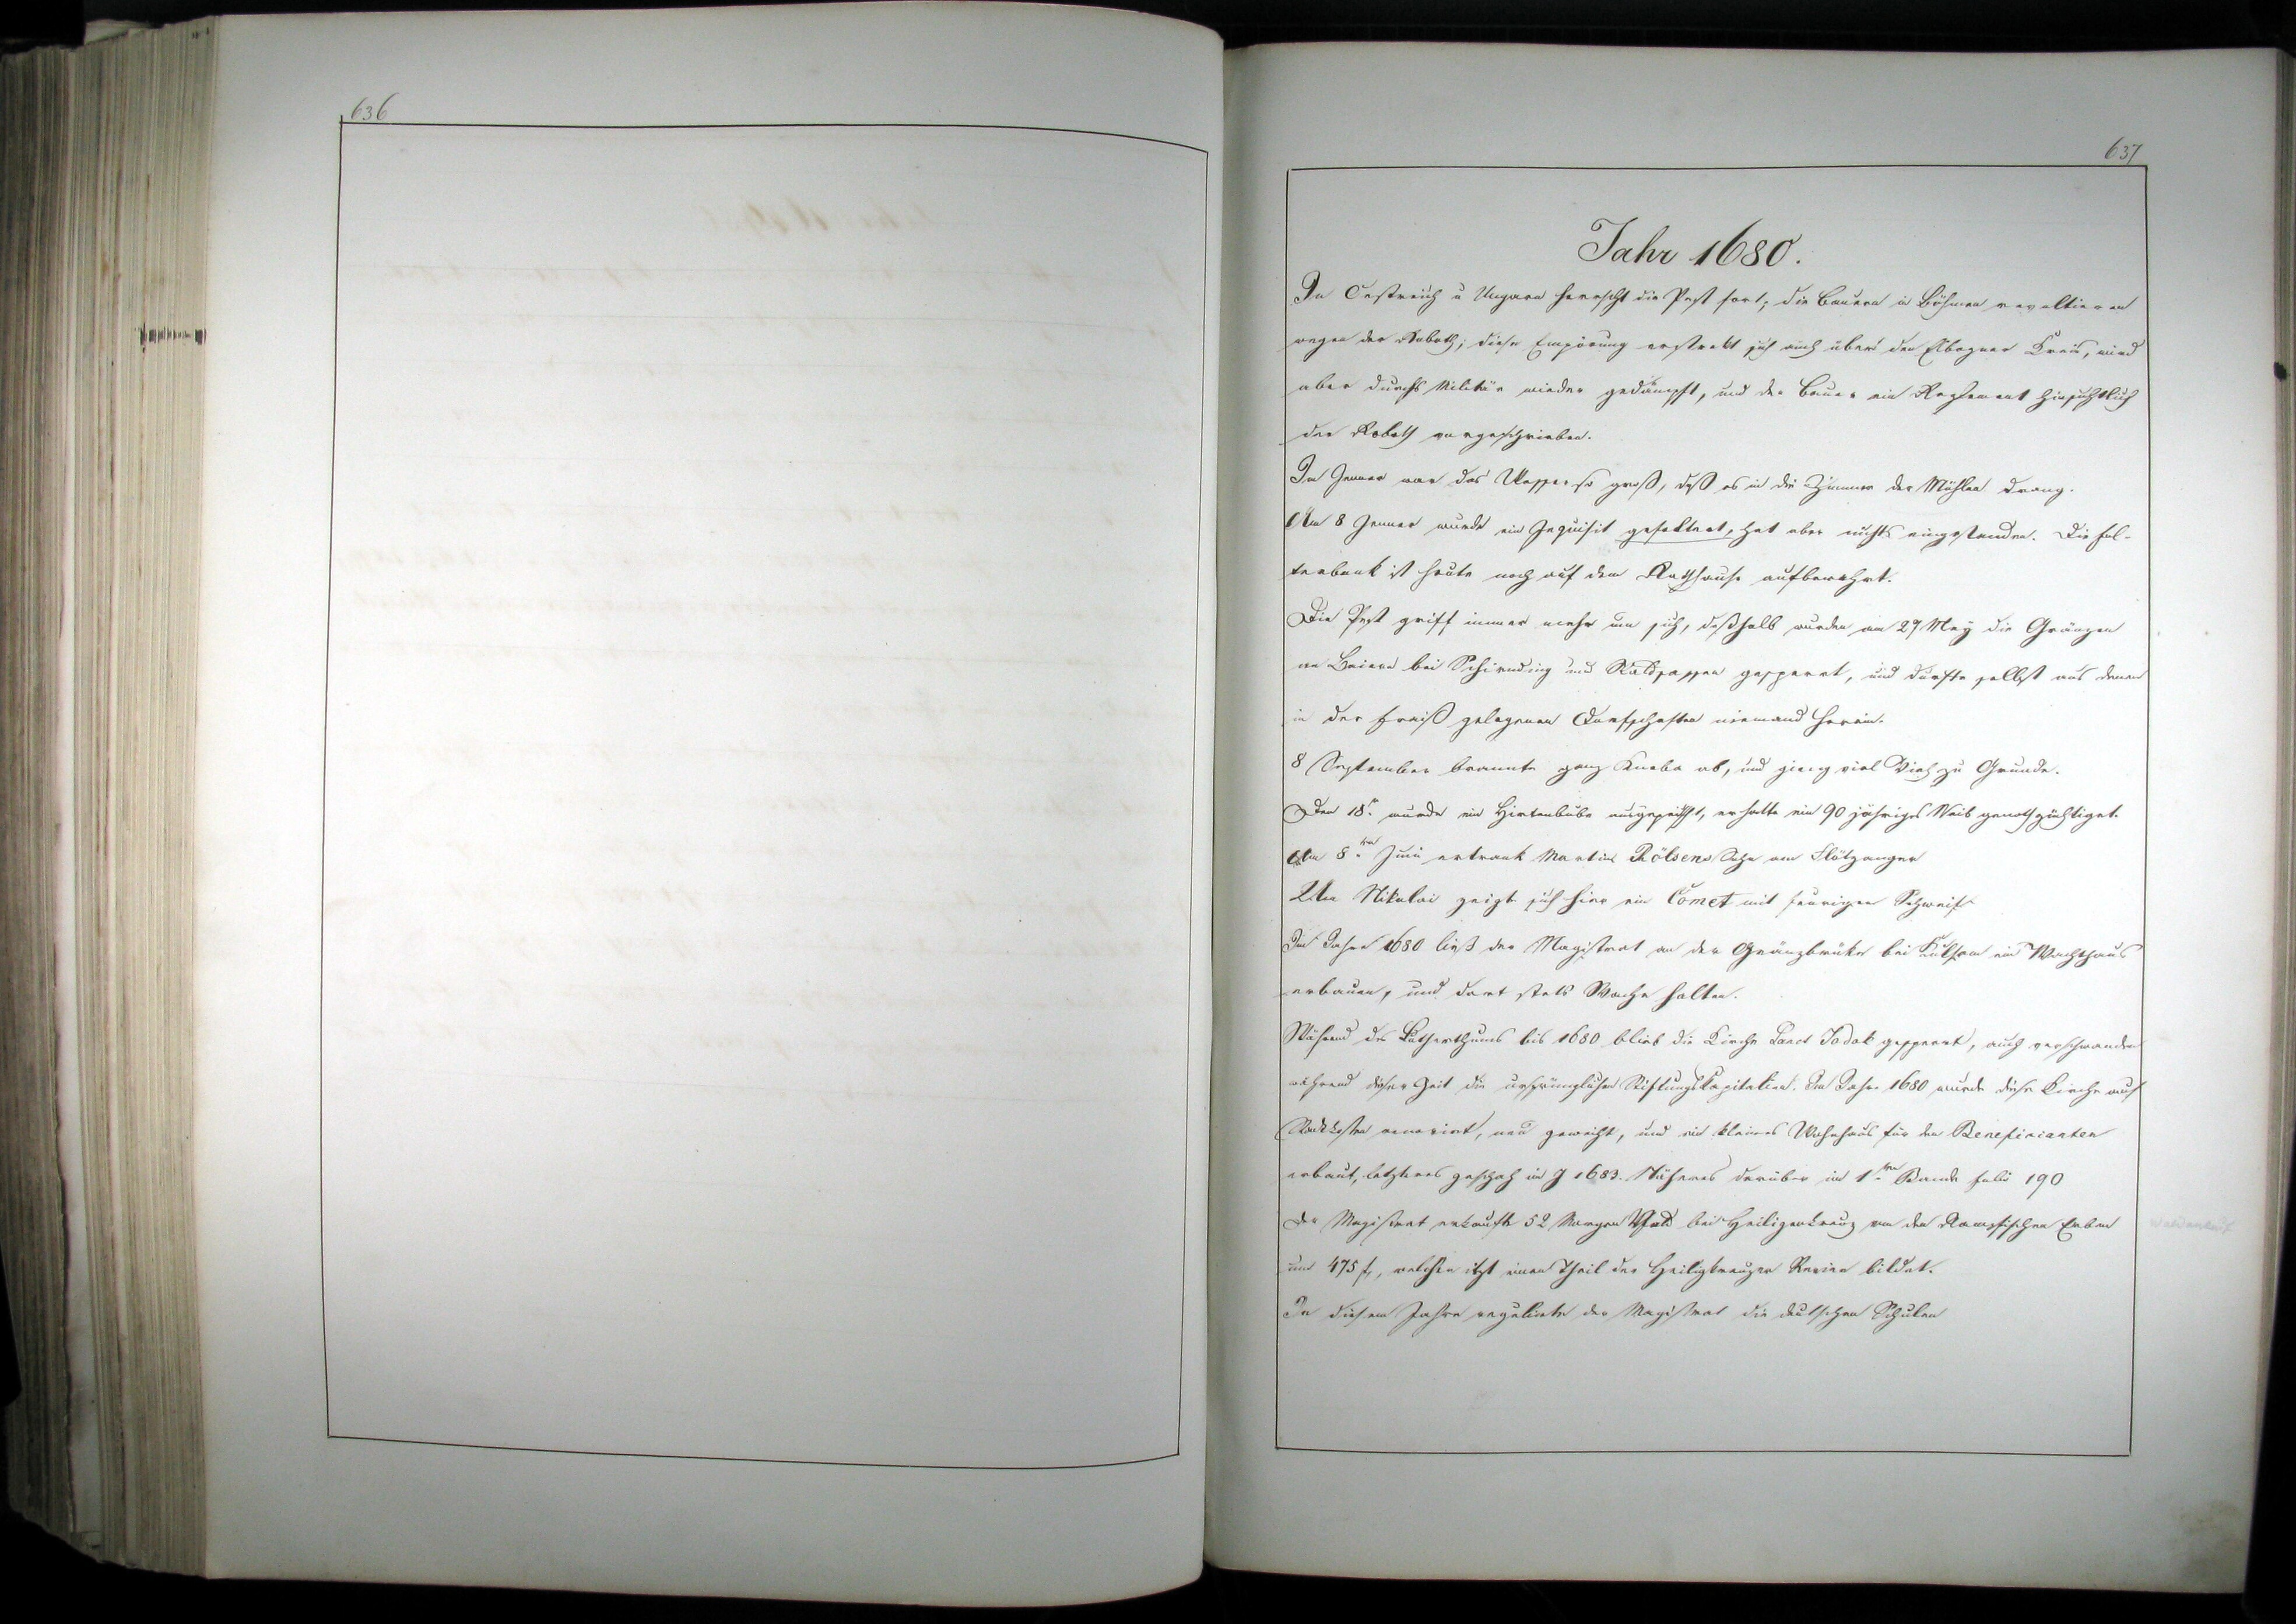 636
637
Jahr 1680.
In Oestreich u Ungarn herrscht die Pest fort, die Bauern in Böhmen revoltieren
wegen der Roboth; diese Empörung erstrekt sich auch über den Elbogner Kreis, wird
aber durchs Militär wieder gedämpft, und der Bauer ein Reglement hinsichtlich
der Roboth vorgeschrieben.
Im Jenner war das Wasser so groß, daß es in die Zimmer der Mühlen drang.
Am 8 Jenner wurde ein Inquisit gefoltert, hat aber nichts eingestanden. Die Fol-
terbank ist heute noch auf dem Rathhause aufbewahrt.
Die Pest griff immer mehr um sich, deßhalb wurden am 27 May die Gränzen
an Baiern bei Schirnding und Waldsassen gesperrt, und durfte selbst aus denen
in der Fraiß gelegenen Dorfschaften niemand herein.
8 September brannte ganz Kneba ab, und gieng viel Vieh zu Grunde.
Den 18t wurde ein Hirtenbube ausgepeitscht, er hatte ein 90 jähriges Weib genothzüchtiget.
Am 8ten Juni ertrank Martin Rölsens Sohn am Flötzanger
Am Nikolai zeigt sich hier ein Comet mit feurigen Schweif
Im Jahre 1680 ließ der Magistrat an der Gränzbrüke bei Kulsam ein Wachthaus
erbauen, und dort stets Wache halten.
Während des Lutherthums bis 1680 blieb die Kirche Sanct Jodok gesperrt, auch verschwanden
während dieser Zeit die ursprünglichen Stiftungskapitalien. Im Jahre 1680 wurde diese Kirche auf
Stadtkosten renovirt, neu geweiht, und ein kleines Wohnhaus für den Beneficianten
erbaut, letzteres geschah im J 1683. Näheres darüber im 1ten Bande folio 190
Der Magistrat erkaufte 52 Morgen Wald bei Heiligenkreuz von den Erben
um 475 f, welcher itzt einen Theil des Heiligkreuzer Revier bildet.
In diesem Jahre regulirte der Magistrat die deutschen Schulen